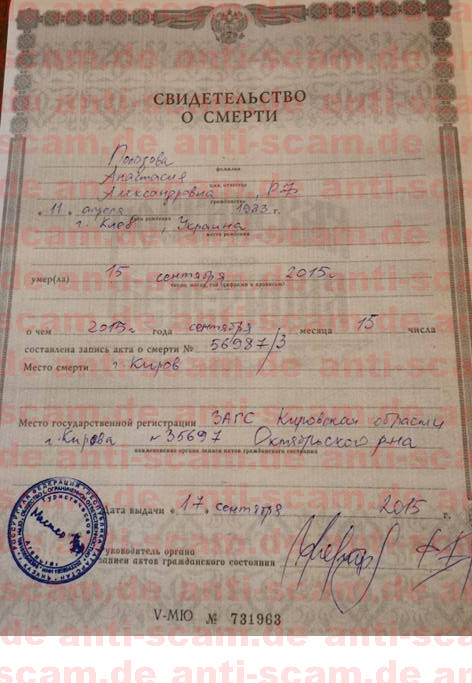 СВИДЕТЕЛЬСТВО
О СМЕРТИ
фамилия
Анастасия
имя, отчество
Александровна, РФ
гражданство
" 11 " апреля 1983 г.
дата рождения
г. Киев, Украина
место рождения
умер(ла) 15 сентября 2015г.
число, месяц, год (цифрами и прописью)
о чем 2015г. года сентября месяца 15 числа
составлена запись акта о смерти № 56987/3
Место смерти г. Киров
Место государственной регистрации ЗАГС Кировская области
г. Кирова №35697 Октябрьского р-на
наименование органа записи актов гражданского состояния
Дата выдачи « 17. сентября 2015 г.
Руководитель органа
записи актов гражданского состояния
V-МЮ № 731963
anti-scam.de